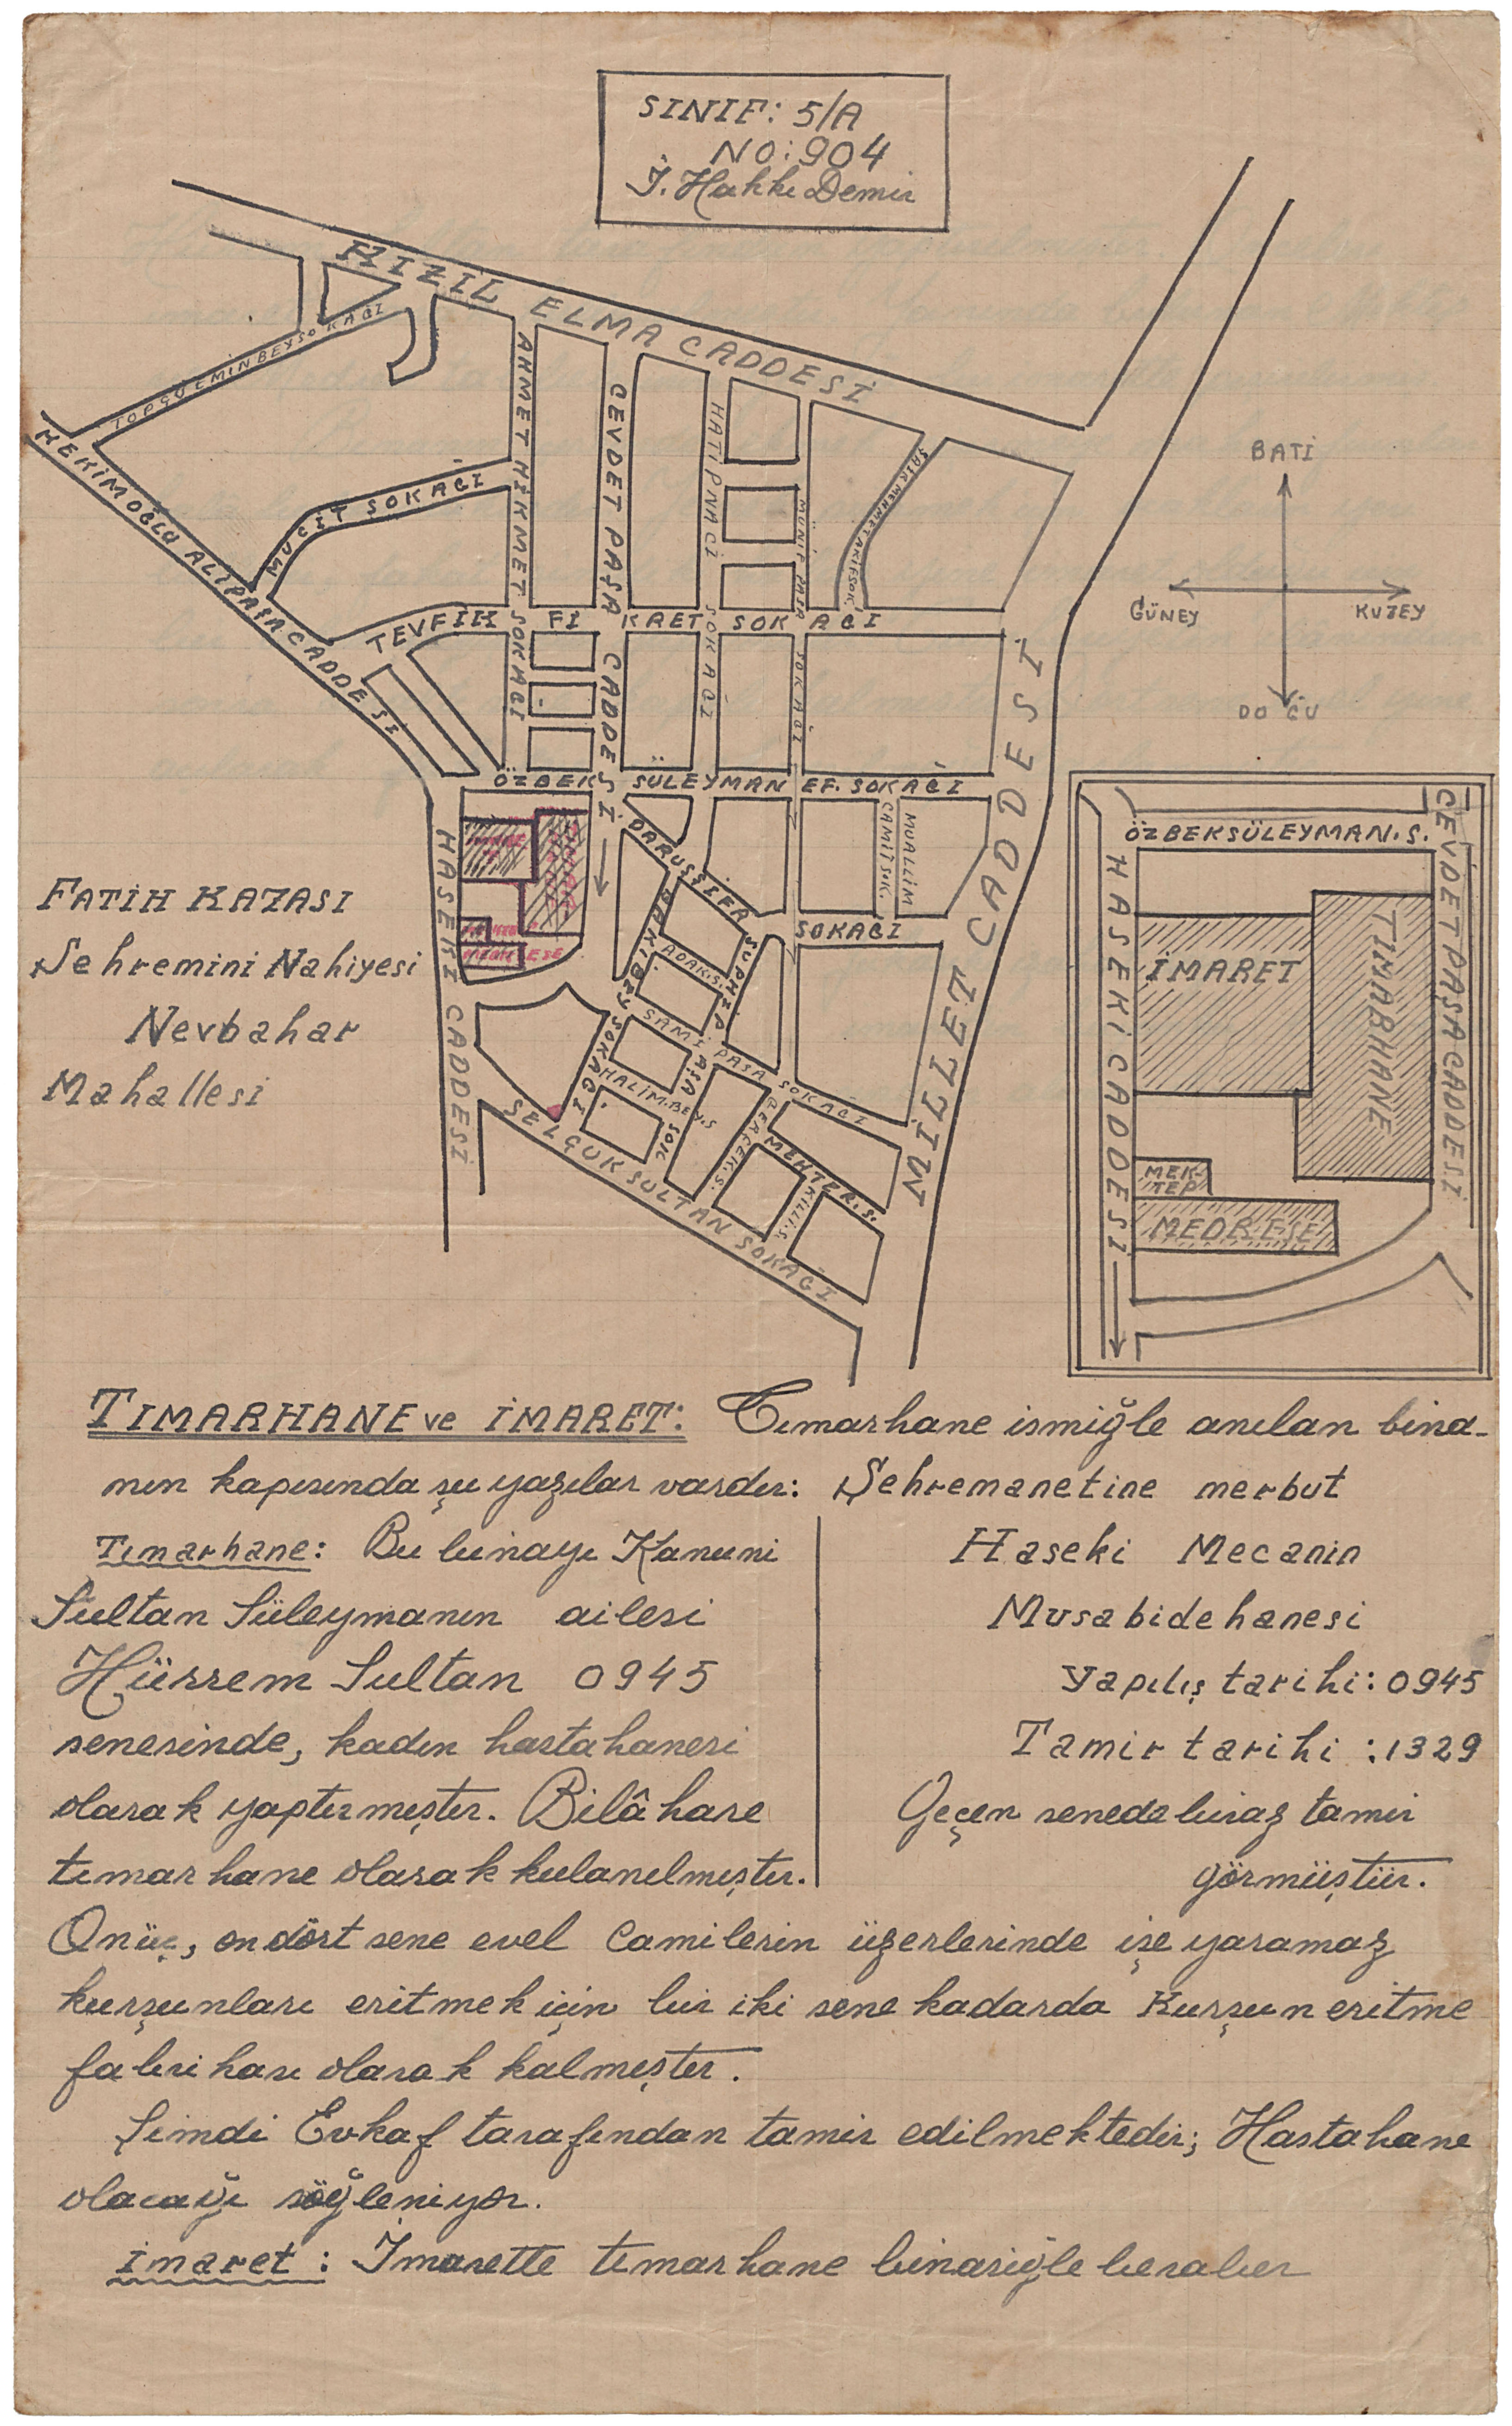 SINIF: 5/A
NO: 904
İ. Hakkı Demir
KIZIL ELMA CADDESİ
TOPÇU EMİN BEY SOKAĞI
HEKİMOĞLU ALİPAŞA CADDESİ
MUCİT SOKAĞI
AHMET HİKMET SOKAĞI
CEVDET PAŞA CADDESİ
HATİP NACİ SOKAĞI
MÜNİF PAŞA SOKAĞI
ŞAİR MEHMET AKİF SOK.
TEVFİK FİKRET SOKAĞI
ÖZBEK SÜLEYMAN EF. SOKAĞI
MİLLET CADDESİ
BATİ
GÜNEY
KUZEY
DOĞU
DARÜŞŞİFA SOKAĞI
MUALLİM
CAMİİ SOK.
BAKİ BEY SOKAĞI
ADAK.S.
SUPHİ PAŞA SOK
SAMİ PAŞA SOKAĞI
HALİM.BEY.S
GERÇEK.S.
MEHTER.S.
KİLLİ.S.
SELÇUK SULTAN SOKAĞI
HASEKİ CADDESİ
MEDRESE
FATİH KAZASI
Şehremini Nahiyesi
Nevbahar
Mahallesi
ÖZBEKSÜLEYMAN.S.
CEVDET PAŞA CADDESİ
HASEKİ CADDESİ
İMARET
TIMARHANE
MEK-
TEP
MEDRESE
TIMARHANE ve İMARET: Tımarhane ismiğle anılan bina-
nın kapısında şu yazılar vardır: Şehremanetine merbut
Haseki Mecanin
Musabidehanesi
Yapılış tarihi: 0945
Tamir tarihi : 1329
Geçen senede biraz tamir
görmüştür.
Tımarhane: Bu binayı Kanuni
Sultan Süleymanın ailesi
Hürrem Sultan 0945
senesinde, kadın hastahanesi
olarak yaptırmıştır. Bilâhare
tımarhane olarak kulanılmıştır.
Onüç, ondört sene evel Camilerin üzerlerinde işe yaramaz
kurşunları eritmek için bir iki sene kadarda Kurşun eritme
fabrikası olarak kalmıştır.
Şimdi Evkaf tarafından tamir edilmektedir; Hastahane
olacağı söğleniyor.
İmaret: İmarette tımarhane binasiğle beraber